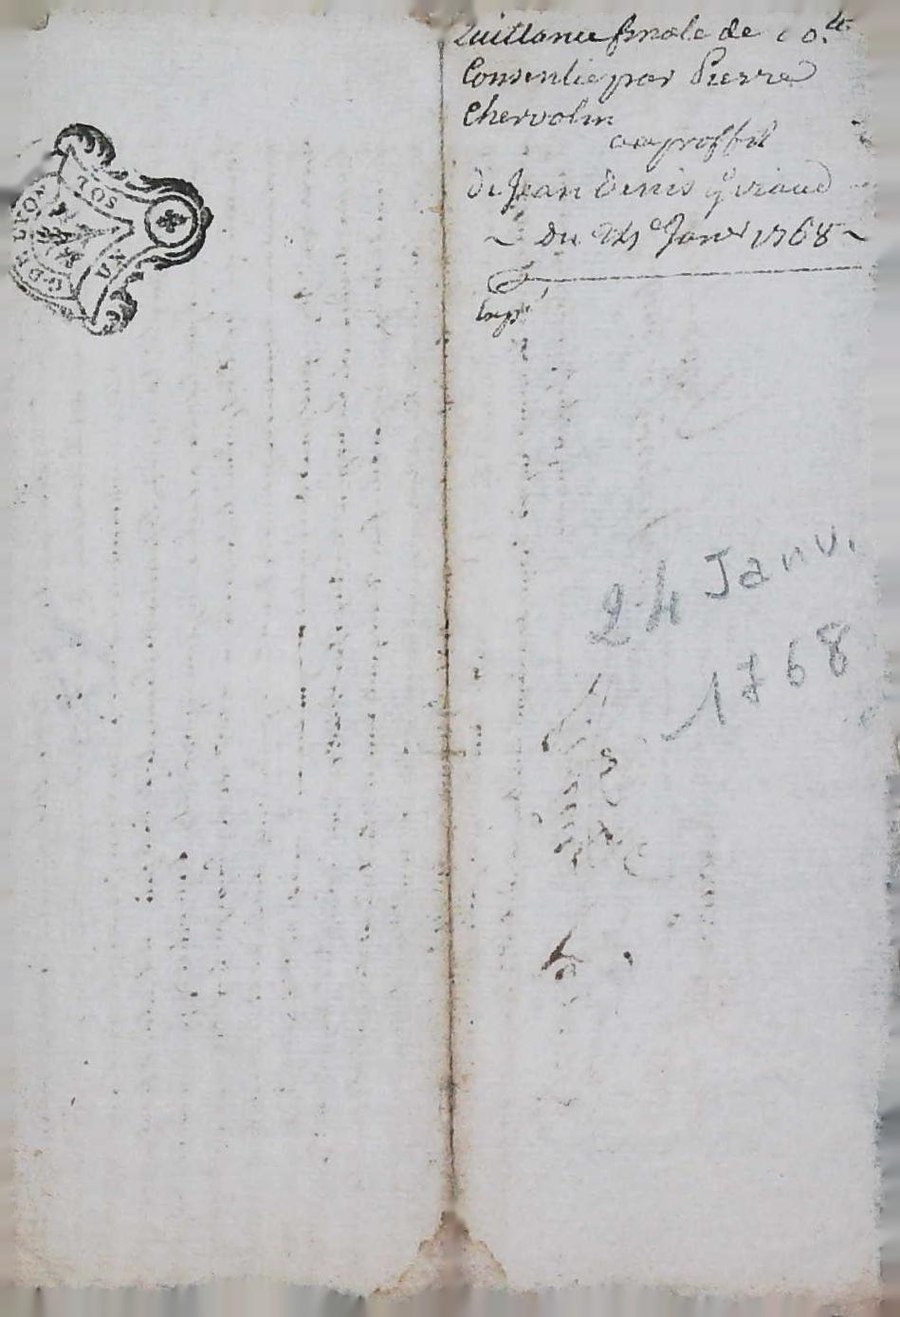 Quittance finale de 60.lt
Consentie par Pierre
Chervolin
au proffit
de Jean Denis Giraud
~ du 24e Janvr 1768 ~
Exp
24 Janv.
1768
SOL